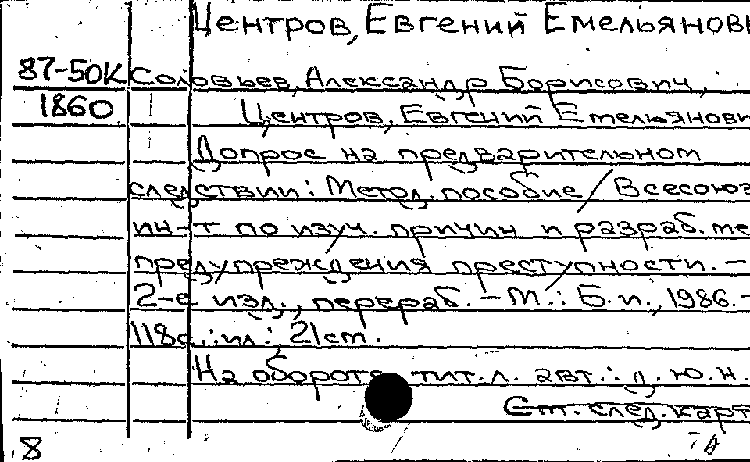 Центров, Евгений Емельянови
87-50К Соловьев, Александр Борисович,
1860 Центров, Евгений Емельянови
Допрос на предварительном
следствии: Метод. пособие / Всесоюз
ин-т по изуч. причин и разраб. ме
предупреждения преступности. -
2-е изд., перераб. - М.: Б. и., 1986. -
118с.: ил.: 21см.
На обороте тит. л. авт.: д. ю. н.
См. след. карт
8